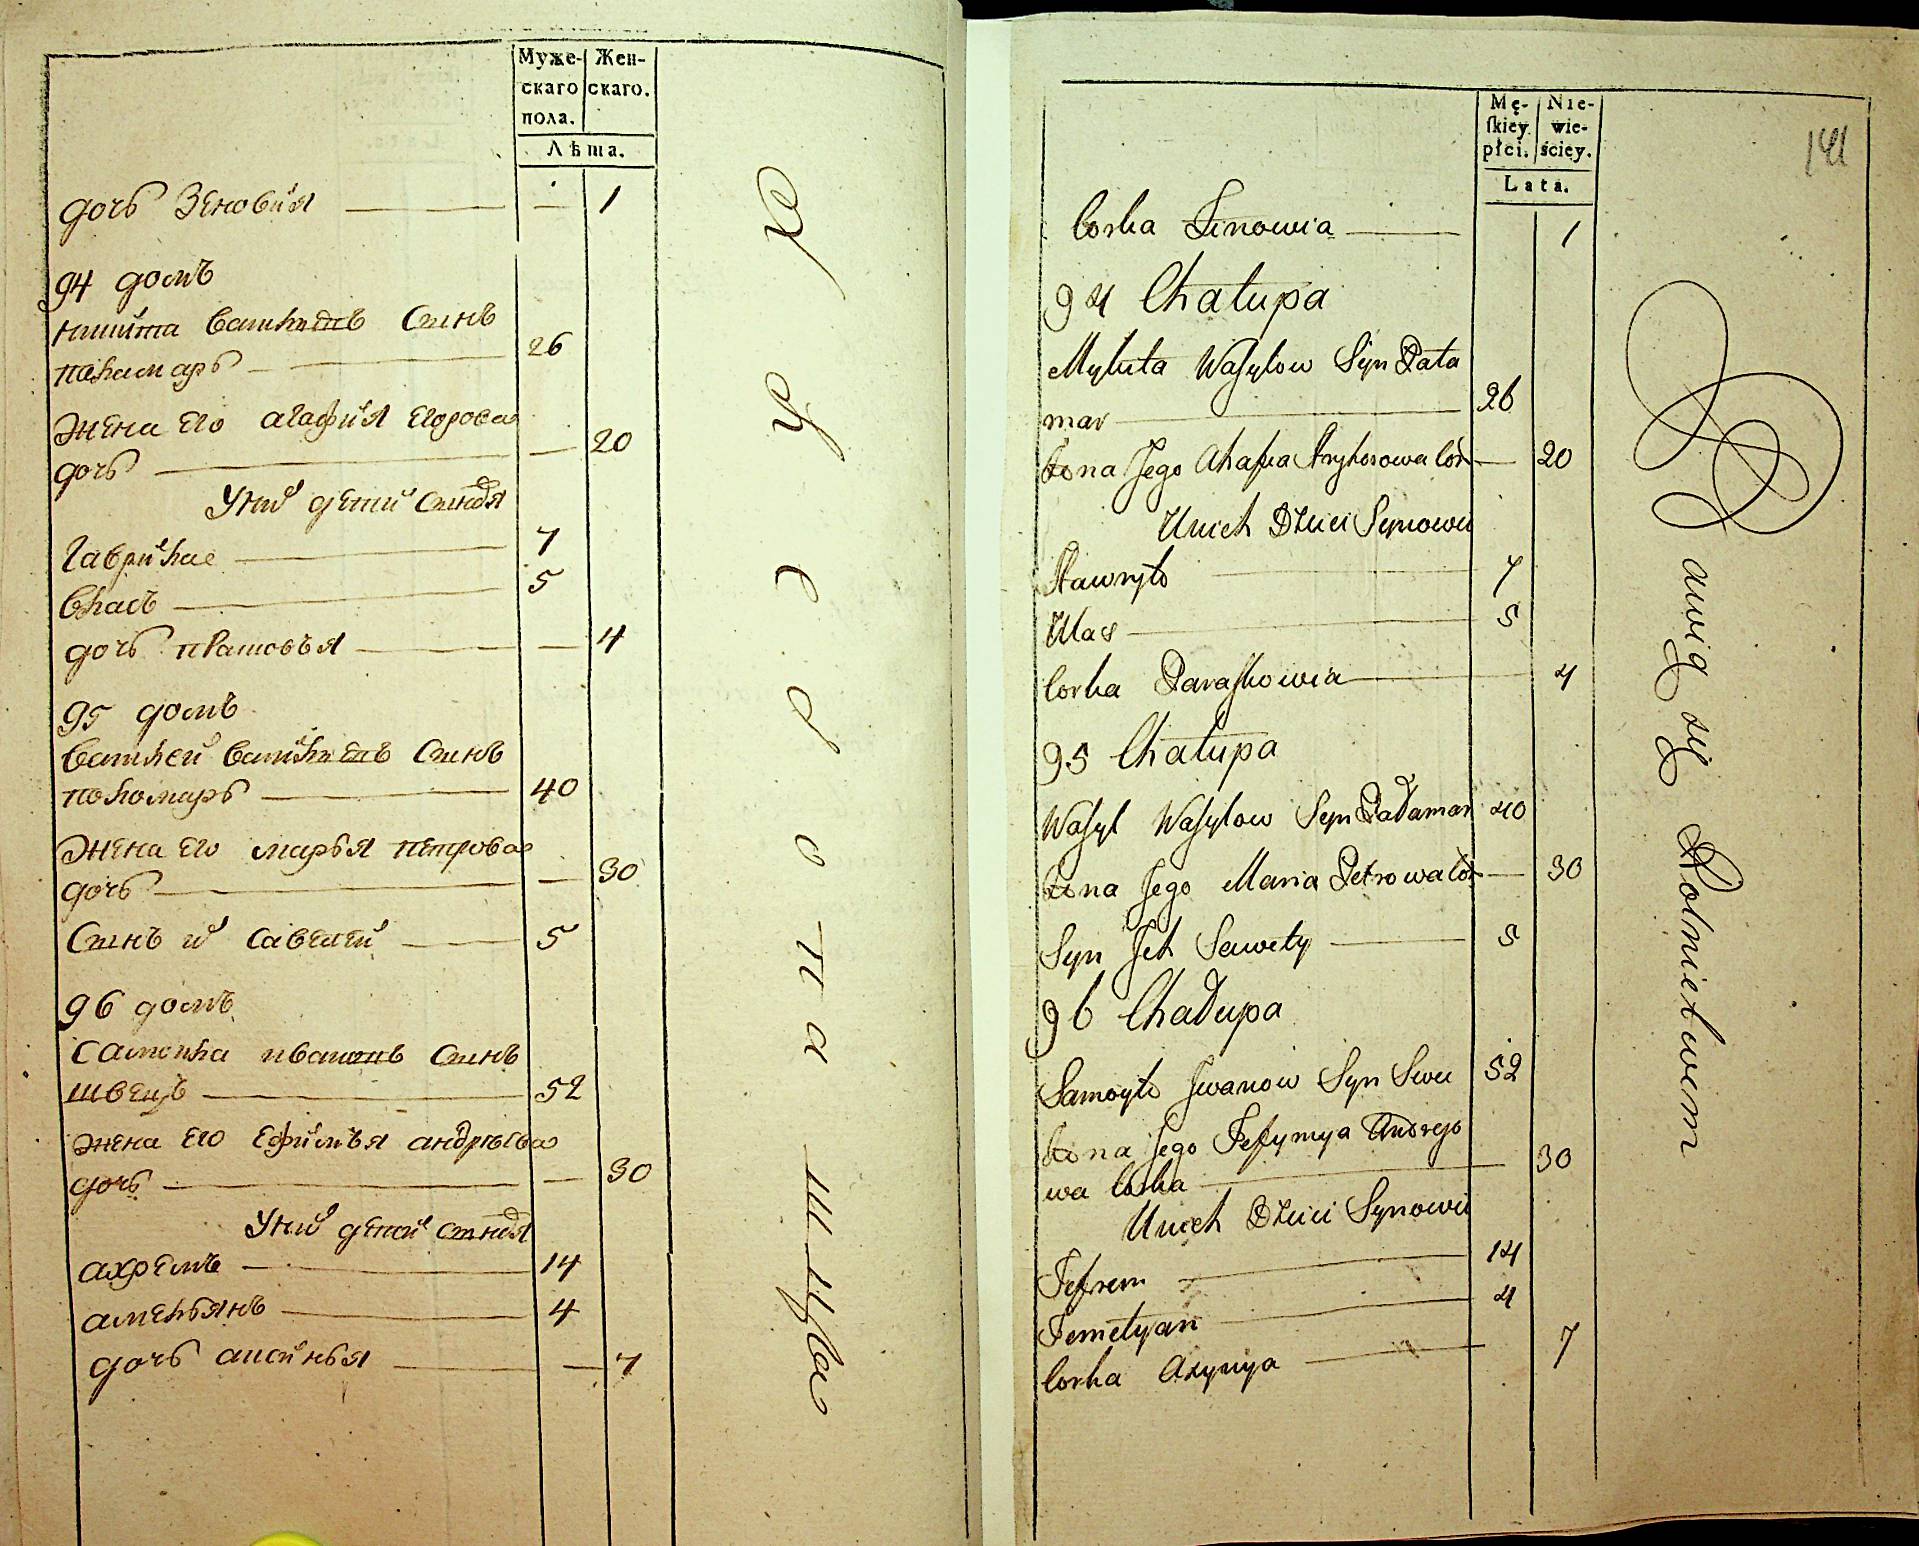 Муже-
скаго
пола.
Жен-
скаго.
Лѣта.
дочь Зеновия 1
94 домъ
никита василевъ синъ
пономаръ 26
жена его агафия егорова
дочь 20
У них дети
гаврило 7
власъ 5
дочь 4
95 домъ
василей василевъ синъ
пономаръ 40
жена его маръя петрова
дочь 30
Синъ савелей 5
96 домъ
самойла ивановъ синъ
швецъ 52
жена его ефимъя андреева
дочь 30
У них дети
ахремъ 14
амельянъ 4
дочь 7
Mę-
skiey
płci.
Nie-
wie-
ściey.
Lata.
141
Corka Zinowia 1
94 Chałupa
Mykita Wasylow Syn Pała
mar 26
Żona Jego Ahafia Hryhorowa Cor 20
Unich Dzieci Synowie
Hawryło 7
Ułas 5
Corka Paraskowia 4
95 Chałupa
Wasyl Wasylow Syn Pałamar 40
Żona Jego Maria Petrowa Cór 30
Syn Jch Sawety 5
96 Chałupa
Samoyło Jwanow Syn Swec 52
Żona Jego Jefymya Andrejo
wa Corka 30
Unich Dzieci Synowie
Jefrem 14
Jemelyan 4
Corka Axynya 7
Bawią się Rolnictwem